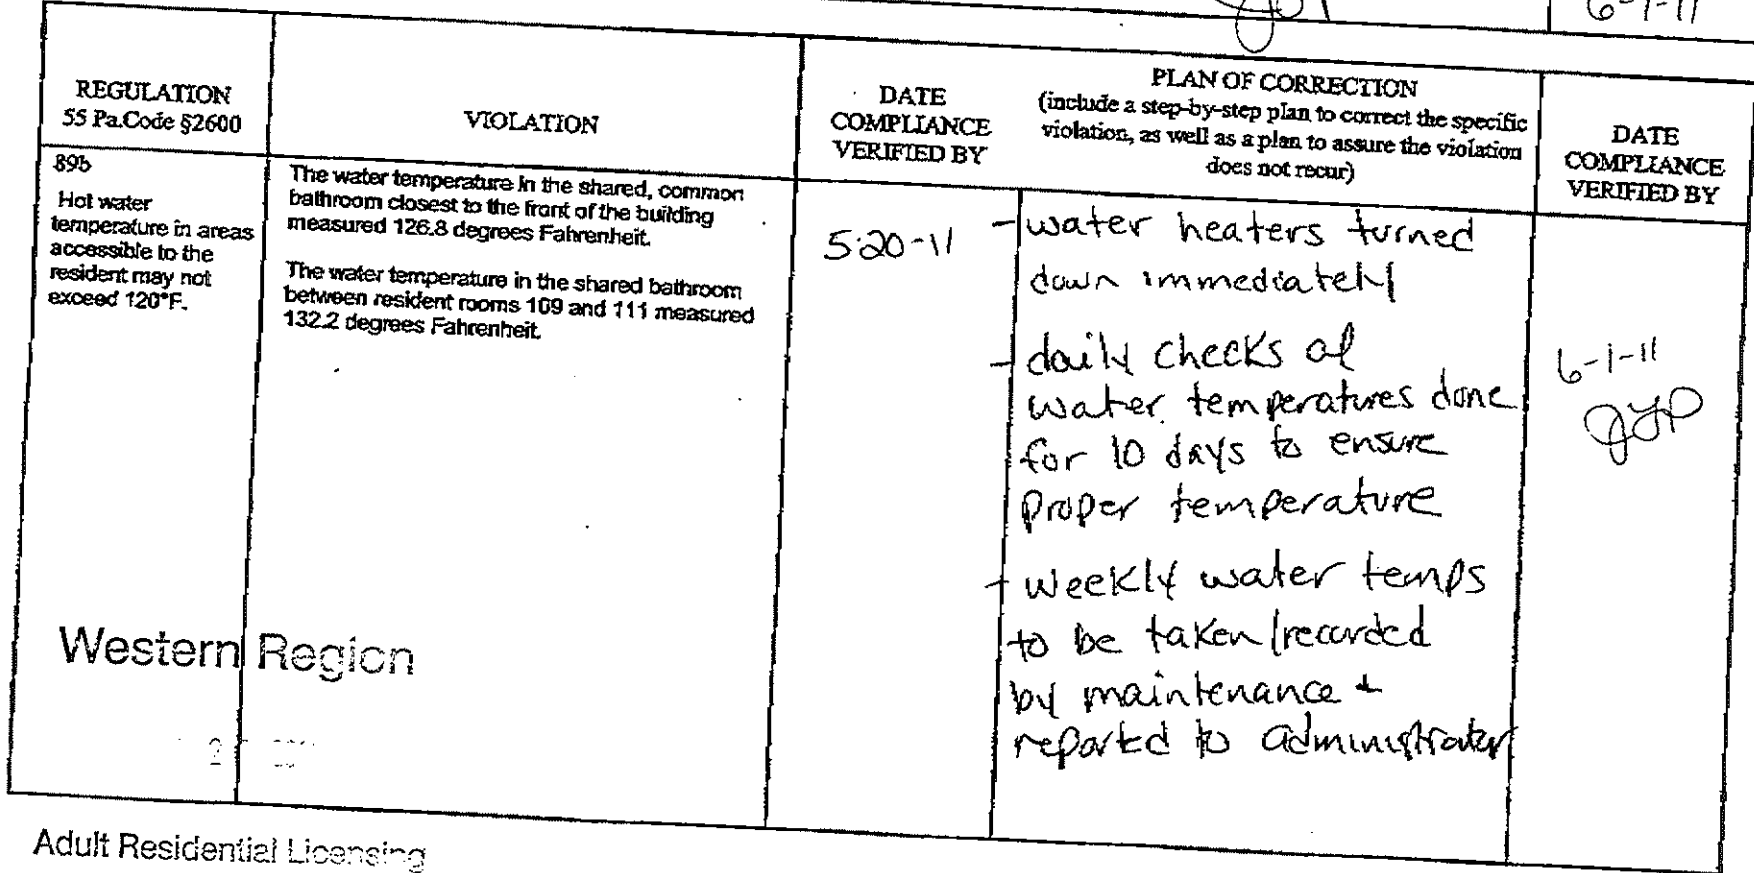 6-1-11
REGULATION
55 Pa.Code §2600
VIOLATION
DATE
COMPLIANCE
VERIFIED BY
PLAN OF CORRECTION
(include a step-by-step plan to correct the specific
violation, as well as a plan to assure the violation
does not recur)
DATE
COMPLIANCE
VERIFIED BY
89b
Hot water
temperature in areas
accessible to the
resident may not
exceed 120°F.
The water temperature in the shared, common
bathroom closest to the front of the building
measured 126.8 degrees Fahrenheit.
The water temperature in the shared bathroom
between resident rooms 109 and 111 measured
132.2 degrees Fahrenheit.
5-20-11
- water heaters turned
down immediately
- daily checks of
water temperatures done
for 10 days to ensure
proper temperature
- weekly water temps
to be taken/recorded
by maintenance +
reported to administrator
6-1-11
Western Region
Adult Residential Licensing